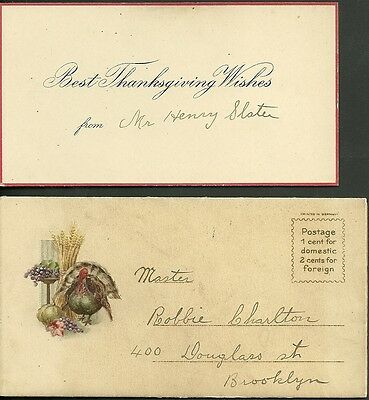 Best Thanksgiving Wishes
from Mr Henry Slster
PRINTED IN GERMANY
Postage
1 cent for
domestic
2 cents for
foreign
Master
Robbie Charlton
400 Douglass st
Brooklyn